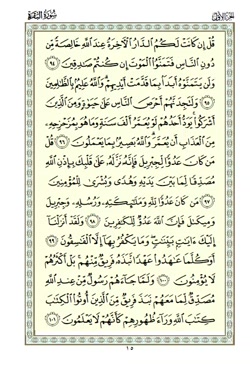 الجزء الأول سورة البقرة
قُلْ إِن كَانَتْ لَكُمُ ٱلدَّارُ ٱلْءَاخِرَةُ عِندَ ٱللَّهِ خَالِصَةً مِّن
دُونِ ٱلنَّاسِ فَتَمَنَّوُا۟ ٱلْمَوْتَ إِن كُنتُمْ صَٰدِقِينَ ٩٤
وَلَن يَتَمَنَّوْهُ أَبَدًۢا بِمَا قَدَّمَتْ أَيْدِيهِمْ وَٱللَّهُ عَلِيمٌۢ بِٱلظَّٰلِمِينَ
٩٥ وَلَتَجِدَنَّهُمْ أَحْرَصَ ٱلنَّاسِ عَلَىٰ حَيَوٰةٍ وَمِنَ ٱلَّذِينَ
أَشْرَكُوا۟ يَوَدُّ أَحَدُهُمْ لَوْ يُعَمَّرُ أَلْفَ سَنَةٍ وَمَا هُوَ بِمُزَحْزِحِهِۦ
مِنَ ٱلْعَذَابِ أَن يُعَمَّرَ وَٱللَّهُ بَصِيرٌۢ بِمَا يَعْمَلُونَ ٩٦ قُلْ
مَن كَانَ عَدُوًّا لِّجِبْرِيلَ فَإِنَّهُۥ نَزَّلَهُۥ عَلَىٰ قَلْبِكَ بِإِذْنِ ٱللَّهِ
مُصَدِّقًا لِّمَا بَيْنَ يَدَيْهِ وَهُدًى وَبُشْرَىٰ لِلْمُؤْمِنِينَ
٩٧ مَن كَانَ عَدُوًّا لِّلَّهِ وَمَلَٰٓئِكَتِهِۦ وَرُسُلِهِۦ وَجِبْرِيلَ
وَمِيكَىٰلَ فَإِنَّ ٱللَّهَ عَدُوٌّ لِّلْكَٰفِرِينَ ٩٨ وَلَقَدْ أَنزَلْنَآ
إِلَيْكَ ءَايَٰتٍۭ بَيِّنَٰتٍ وَمَا يَكْفُرُ بِهَآ إِلَّا ٱلْفَٰسِقُونَ ٩٩
أَوَكُلَّمَا عَٰهَدُوا۟ عَهْدًا نَّبَذَهُۥ فَرِيقٌ مِّنْهُم بَلْ أَكْثَرُهُمْ
لَا يُؤْمِنُونَ ١٠٠ وَلَمَّا جَآءَهُمْ رَسُولٌ مِّنْ عِندِ ٱللَّهِ
مُصَدِّقٌ لِّمَا مَعَهُمْ نَبَذَ فَرِيقٌ مِّنَ ٱلَّذِينَ أُوتُوا۟ ٱلْكِتَٰبَ
كِتَٰبَ ٱللَّهِ وَرَآءَ ظُهُورِهِمْ كَأَنَّهُمْ لَا يَعْلَمُونَ ١٠١
١٥